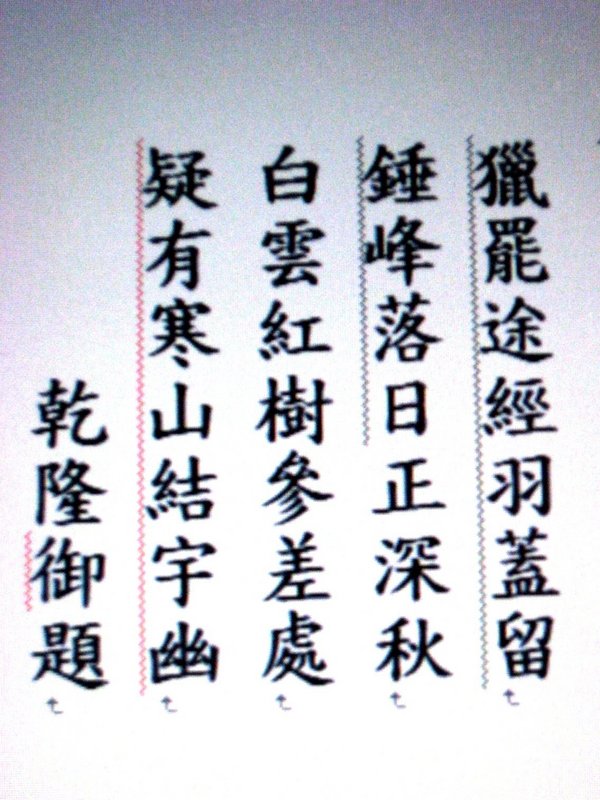 獵罷途經羽蓋留
錘峰落日正深秋
白雲紅樹參差處
疑有寒山結宇幽
乾隆御題